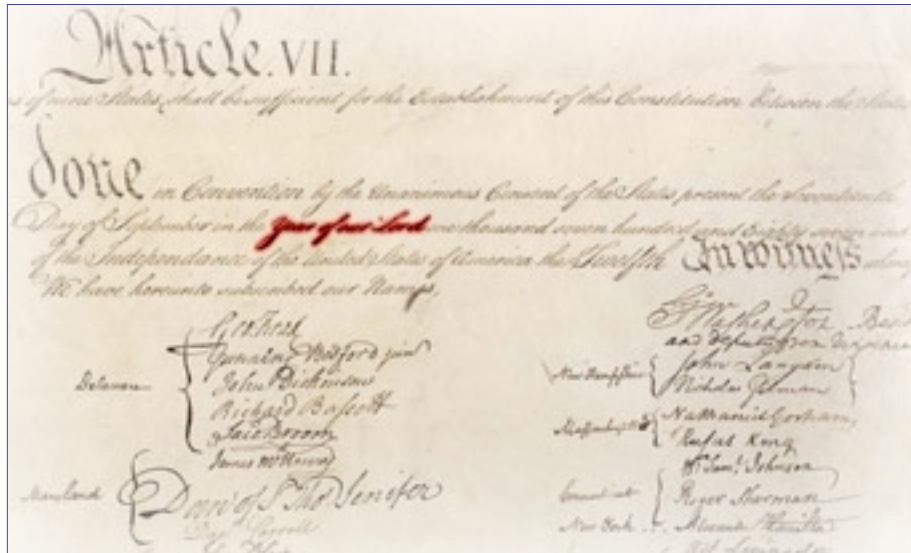 Article. VII.
of nine States, shall be sufficient for the Establishment of this Constitution between the States
done in Convention by the Unanimous Consent of the States present the Seventeenth
Day of September in the Year of our Lord one thousand seven hundred and Eighty seven and
of the Independance of the United States of America the Twelfth In Witness whereof
We have hereunto subscribed our Names,
Geo: Read
Gunning Bedford jun
John Dickinson
Richard Bassett
Jaco: Broom
Delaware
James McHenry
Maryland
Dan of St Thos. Jenifer
Danl Carroll
Go. Washington
and deputy from Virginia
New Hampshire
John Langdon
Nicholas Gilman
Massachusetts
Nathaniel Gorham
Rufus King
Connecticut
Wm. Saml. Johnson
Roger Sherman
New York
Alexander Hamilton